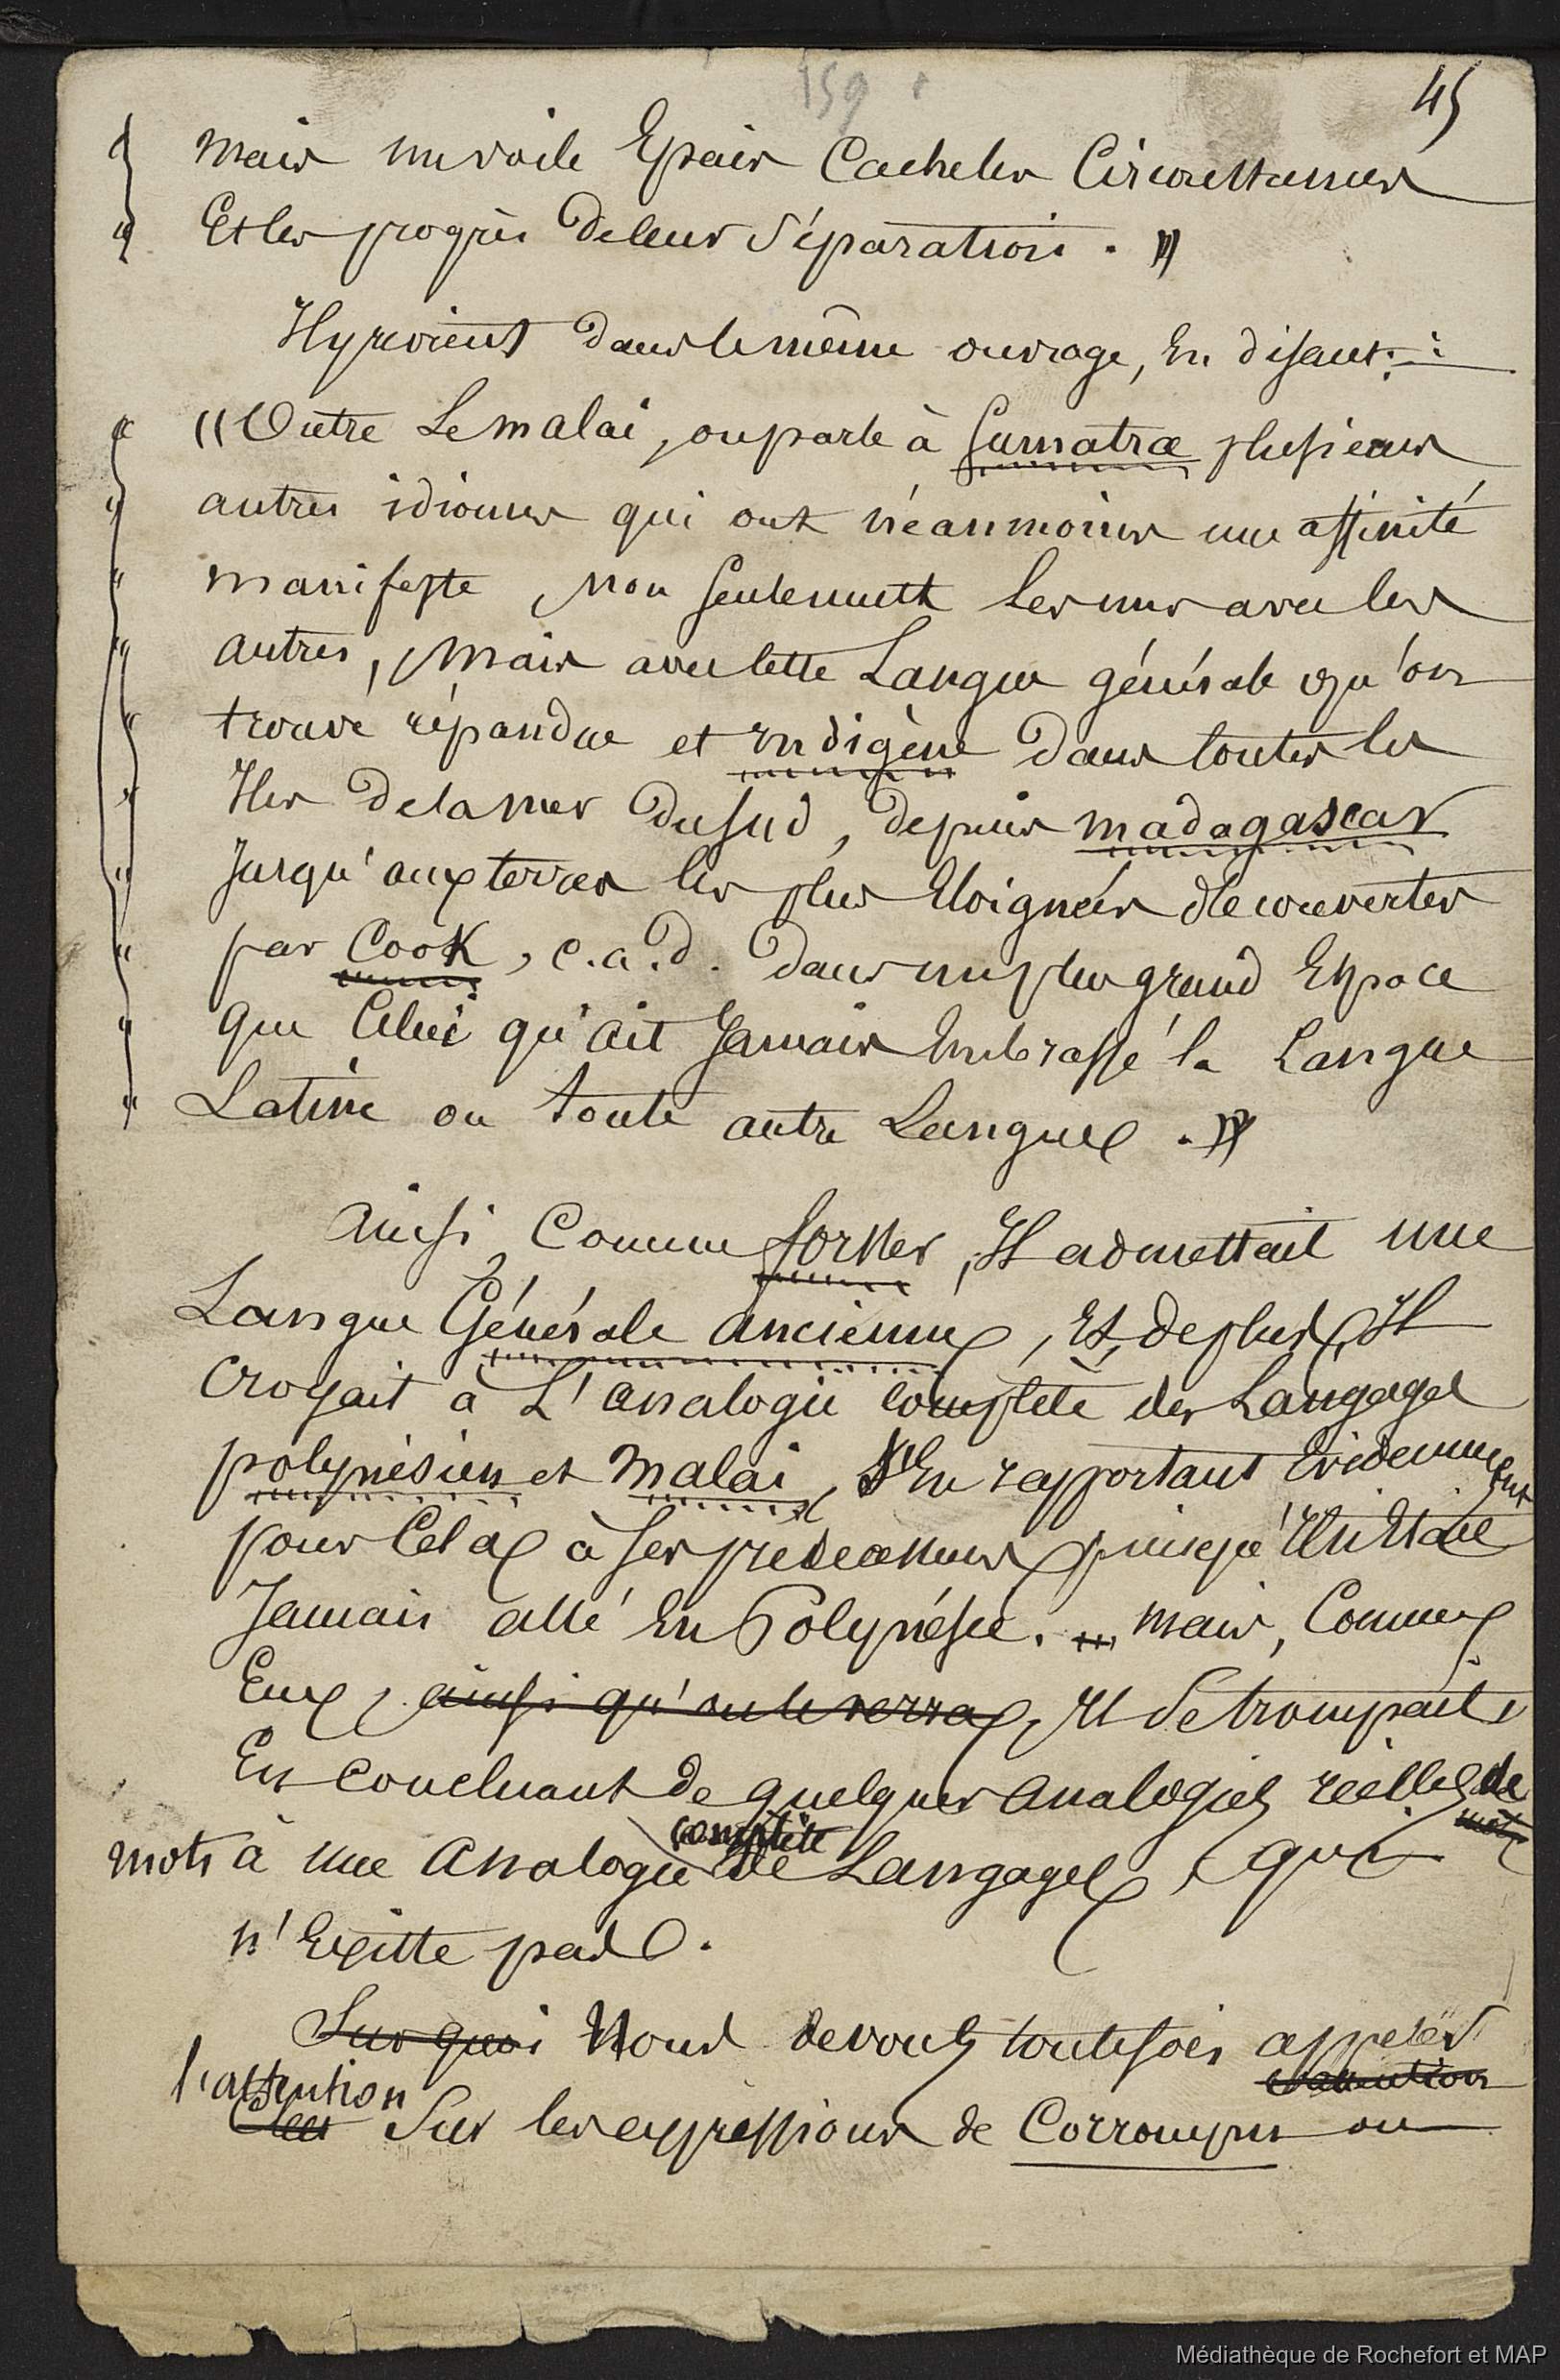 159
45
mais un voile Epais Cache les Circonstances
Et les progrès de leur Séparation. »
Il y revient dans le même ouvrage, En disant :
« Outre Le malai, on parle à Sumatra plusieurs
autres idiomes qui ont néanmoins une affinité
manifeste, Non Seulement Les uns avec les
autres, Mais avec cette Langue générale qu'on
trouve répandue et indigène dans toutes les
Iles de la mer du Sud, depuis madagascar
Jusqu'aux terres les plus Eloignées découvertes
par Cook, c.a.d. dans un plus grand Espace
que Celui qu'ait Jamais Embrassé la Langue
Latine ou toute autre Langue. »
Ainsi, Comme forster, Il admettait une
Langue Générale ancienne, Et, de plus, Il
croyait à L'analogie complète des Langages
polynésien et Malai, S'En rapportant Evidemment
pour Cela à Ses prédécesseurs puisqu'Il n'Etait
Jamais allé En Polynésie. mais, Comme
Eux, ainsi qu'on le verra, Il Se trompait,
En concluant de quelques analogies réelles de
mots
complète
mots à une Analogie de Langage, qui
n'Existe pas.
Sur quoi Nous devons toutefois appeler
l'attention
l'attention
Sur les expressions de Corrompus ou
Médiathèque de Rochefort et MAP